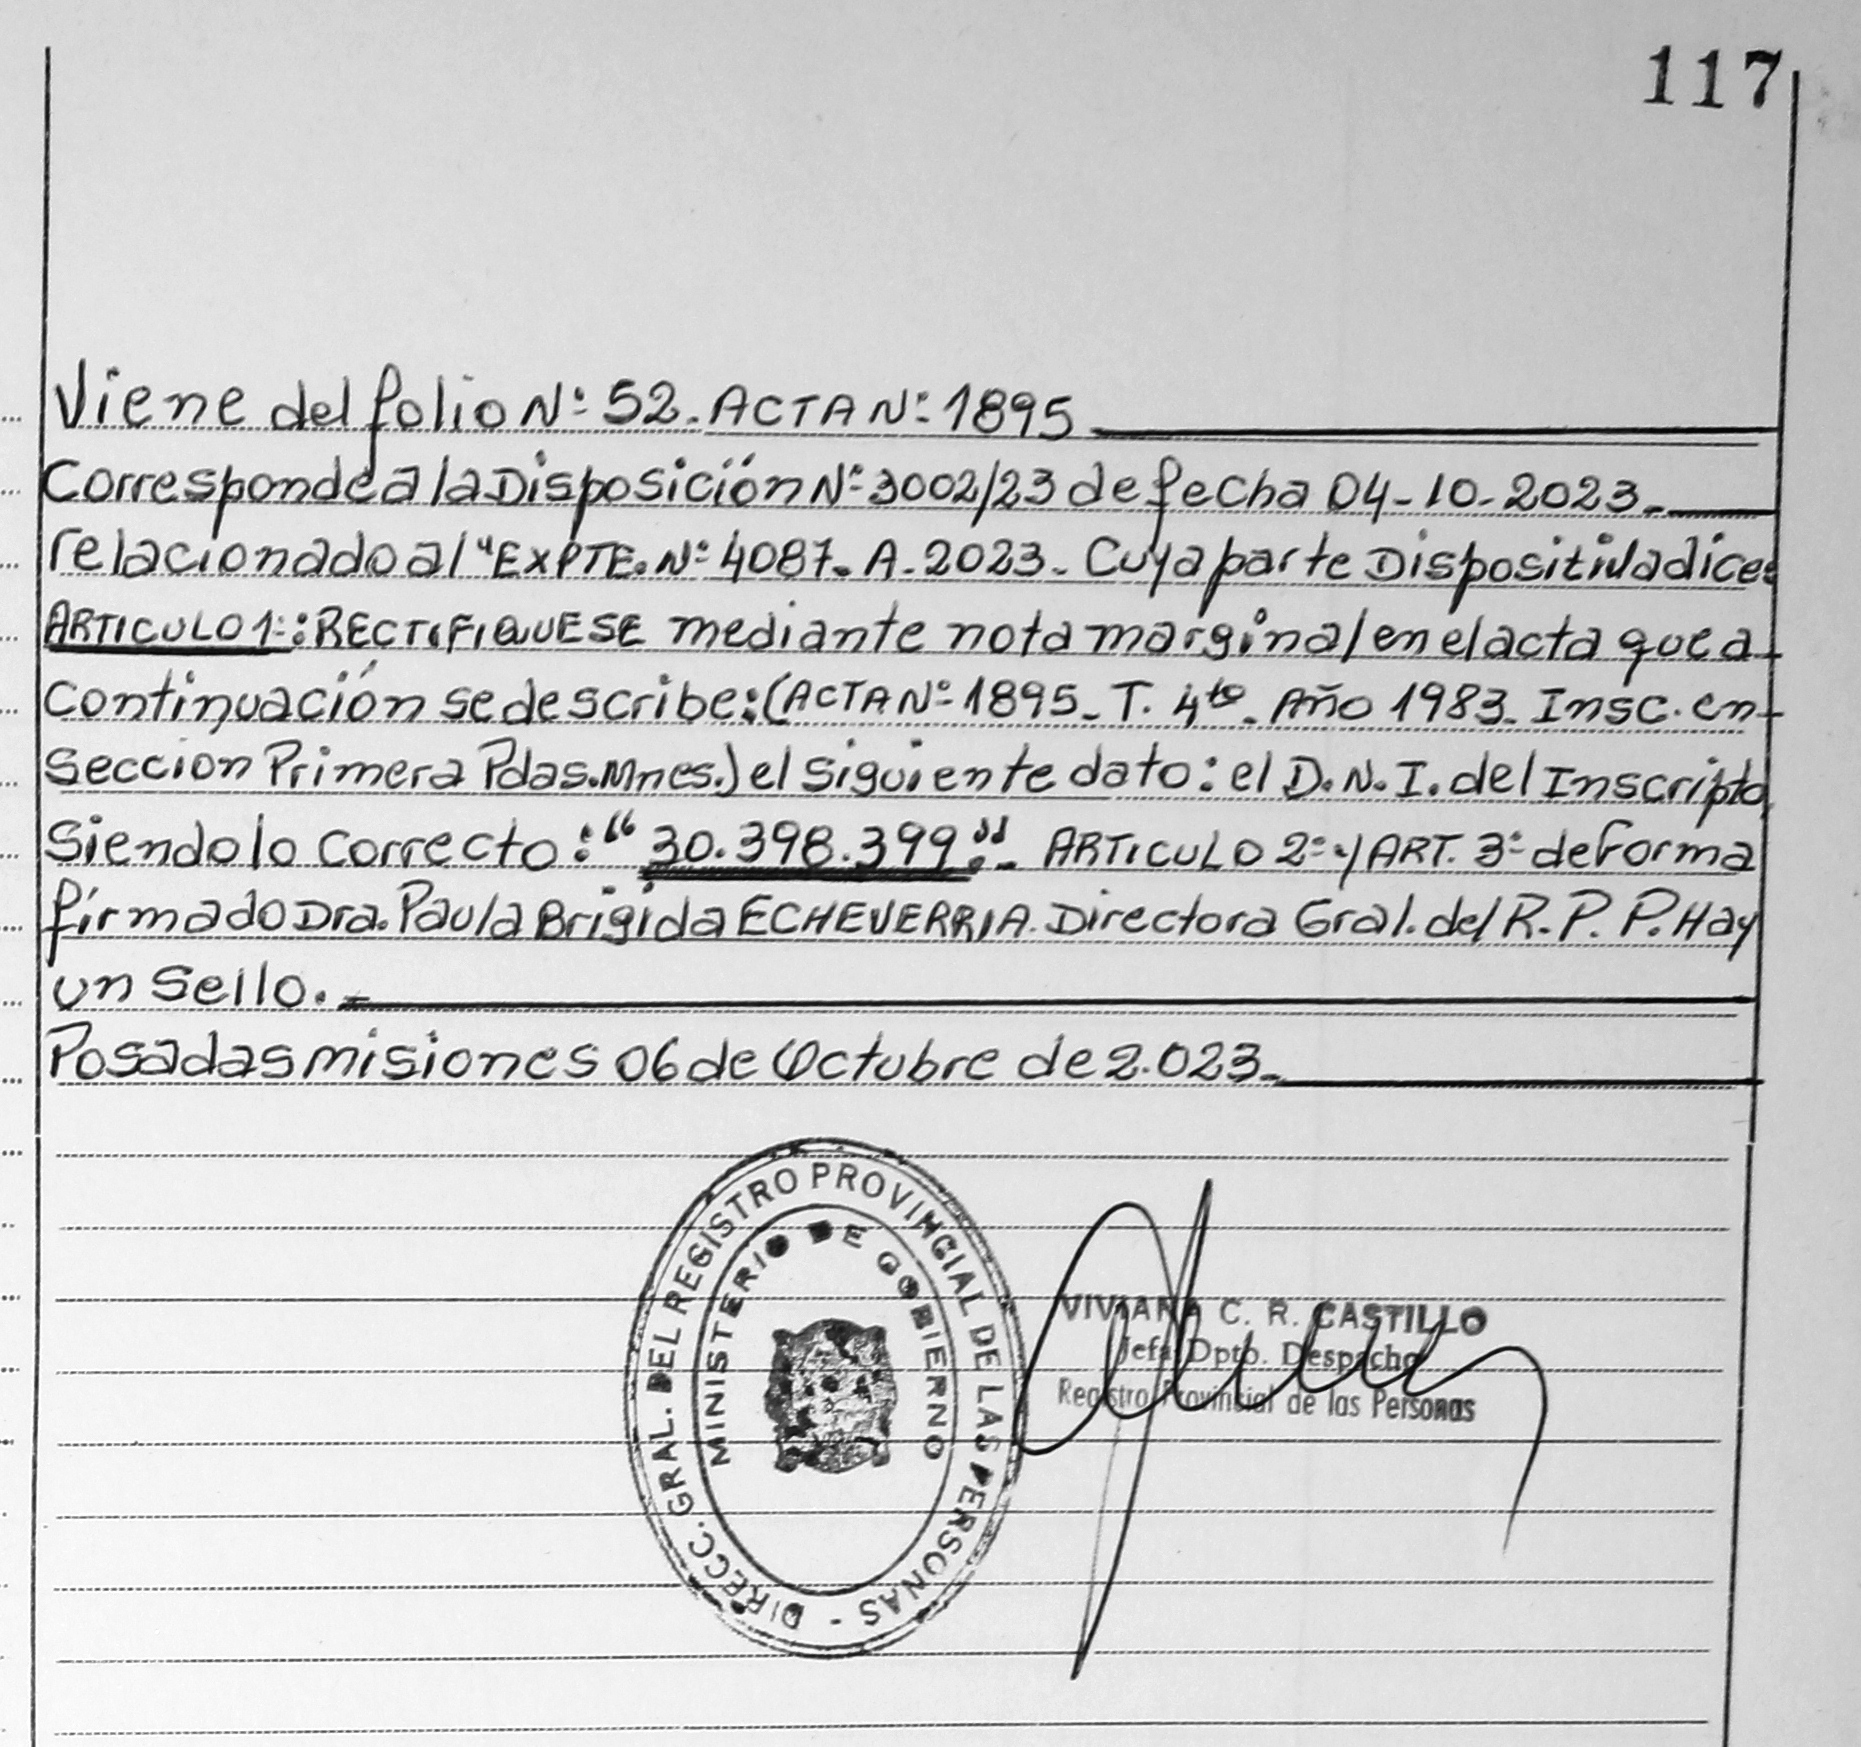 117
Viene del folio Nº 52. ACTA Nº 1895
Corresponde a la Disposición Nº 3002/23 de fecha 04-10-2023.
relacionado al "EXPTE. Nº 4087. A. 2023. Cuya parte Dispositiva dice:
ARTICULO 1º: RECTIFIQUESE mediante nota marginal en el acta que a
Continuación se describe: (ACTA Nº 1895. T. 4to. Año 1983. Insc. en
Sección Primera Pdas. Mnes.) el siguiente dato: el D.N.I. del Inscripto,
Siendo lo correcto: "30.398.399". ARTICULO 2º y ART. 3º de forma
firmado Dra. Paula Brigida ECHEVERRIA. Directora Gral. del R.P.P. Hay
un Sello.
Posadas misiones 06 de Octubre de 2.023.
DIRECC. GRAL. DEL REGISTRO PROVINCIAL DE LAS PERSONAS -
MINISTERIO DE GOBIERNO
VIVIANA C. R. CASTILLO
Jefa Dpto. Despacho
Registro Provincial de las Personas